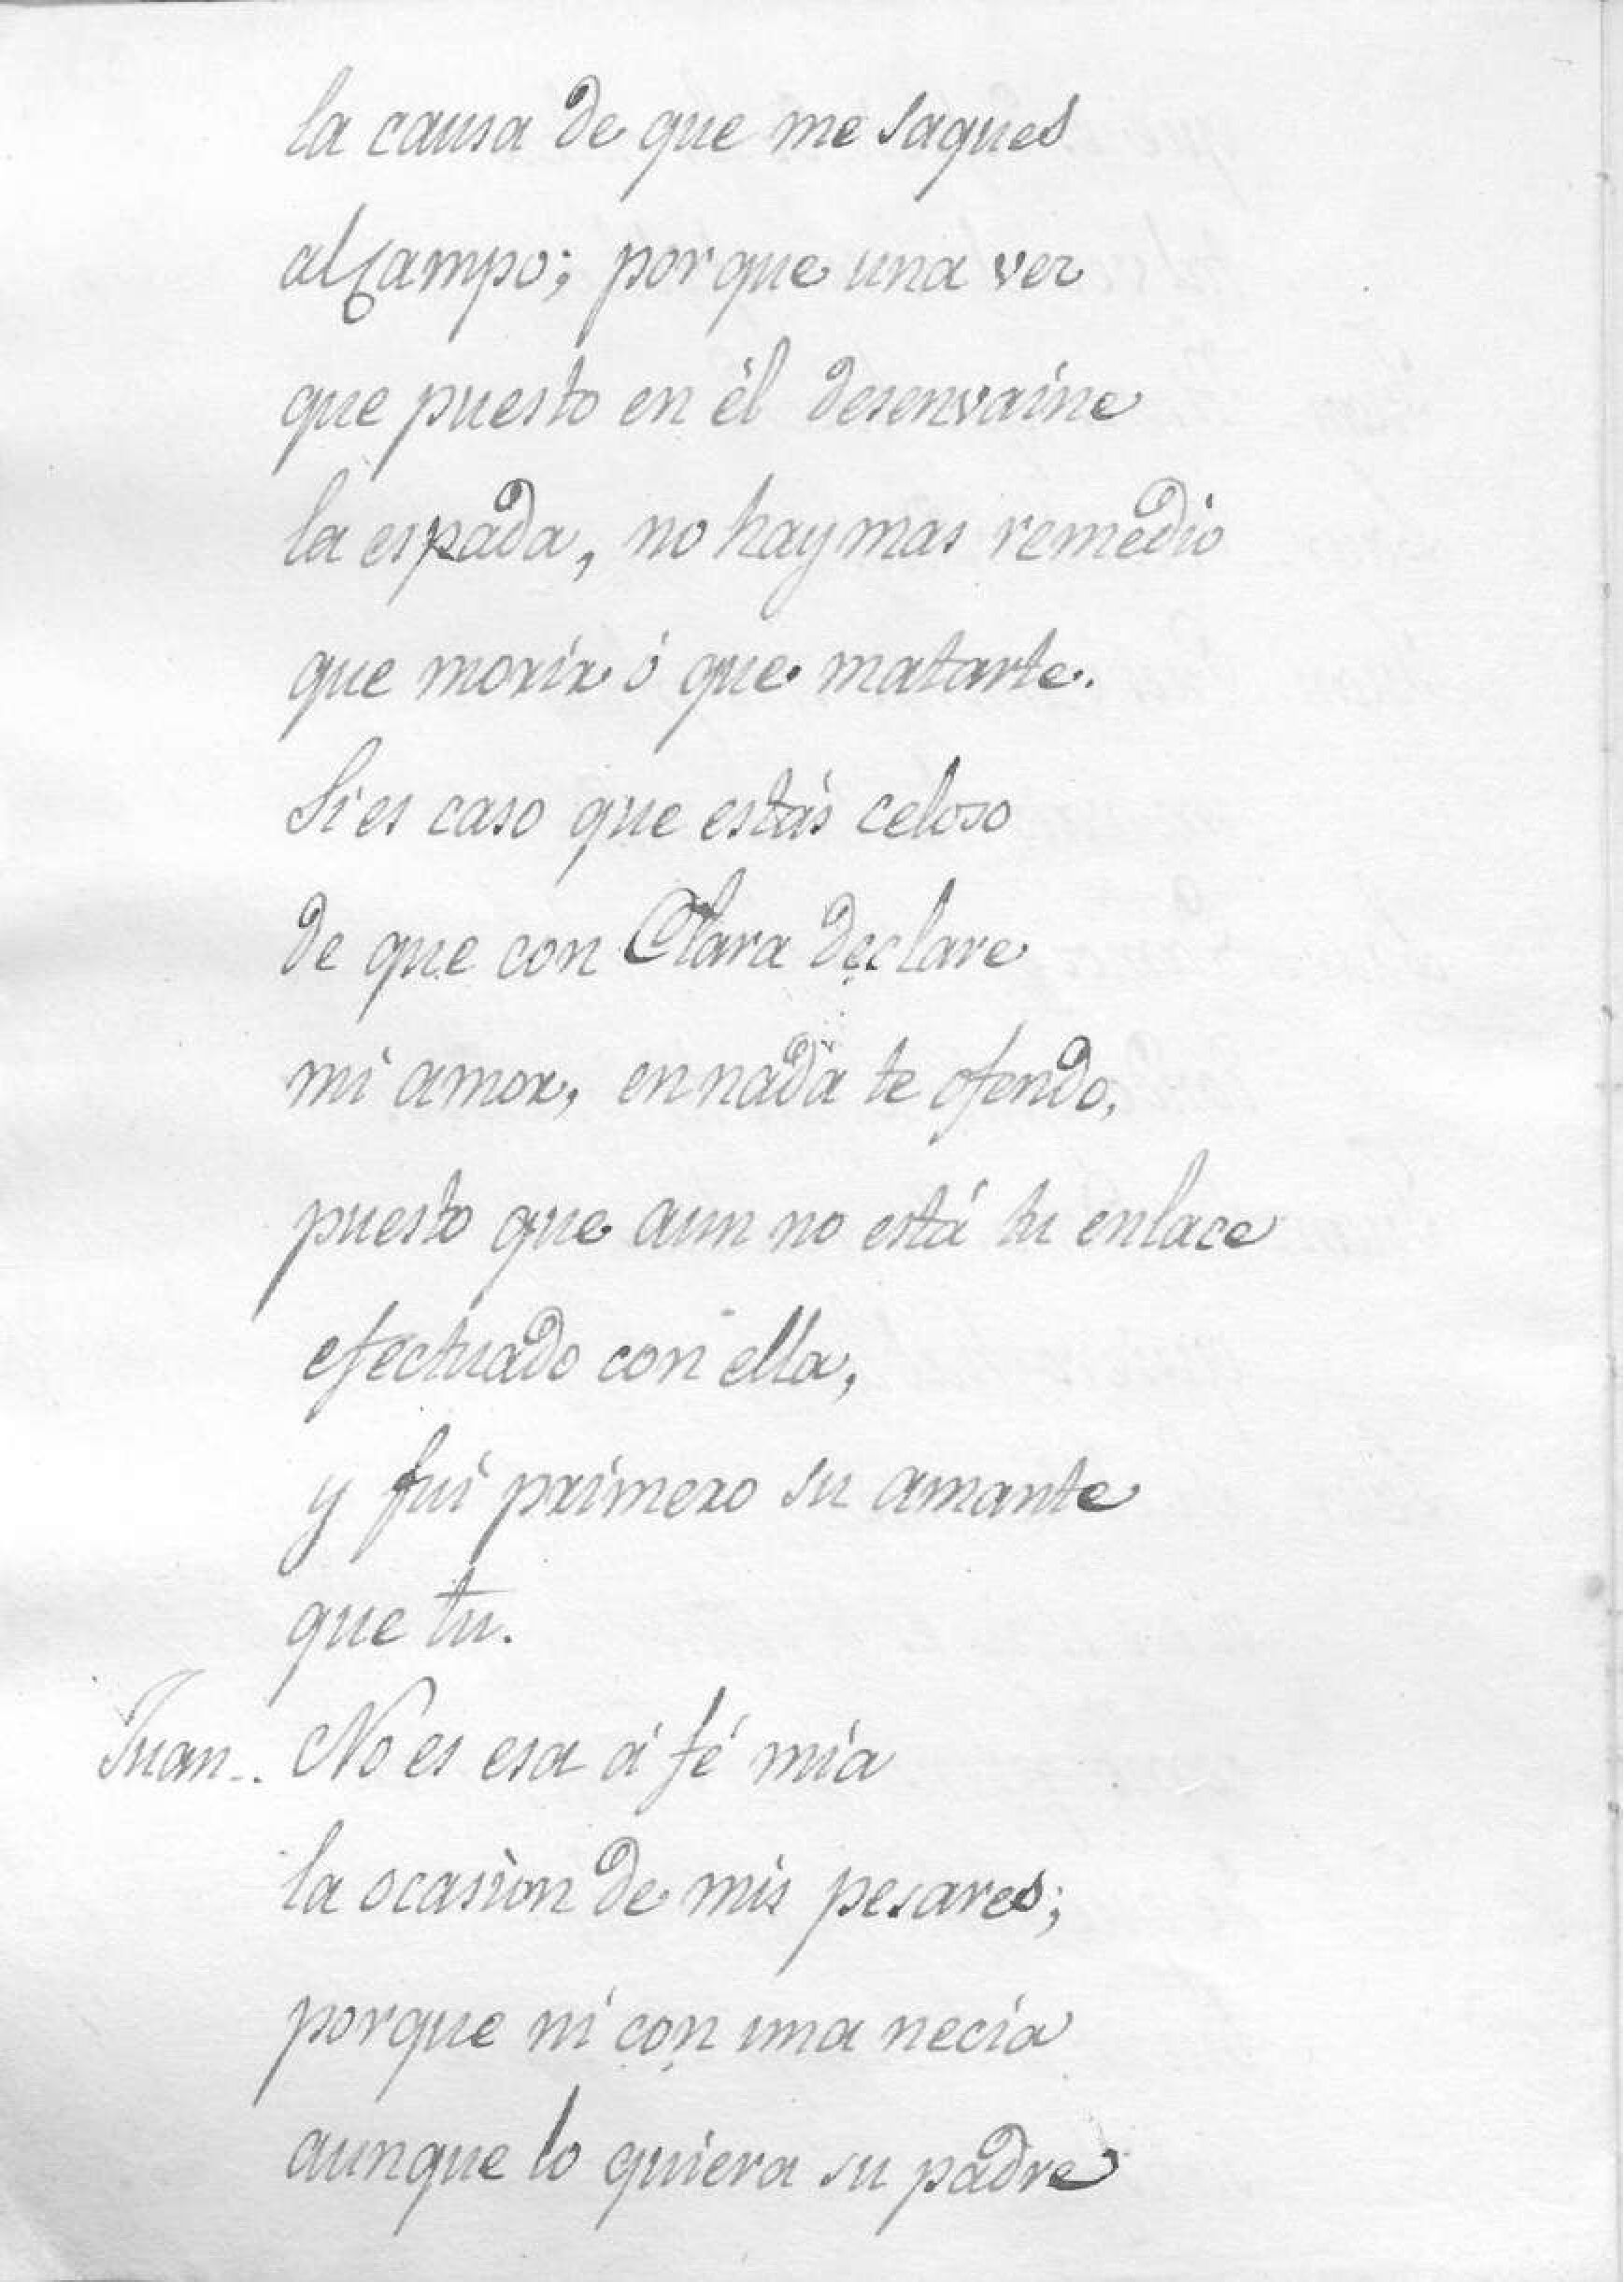 la causa de que me saques
al Campo; por que una vez
que puesto en él desenvaine
la espada, no hay mas remedio
que morir ó que matarte.
Si es caso que estás celoso
de que con Clara declare
mi amor, en nada te ofendo,
puesto que aun no está tu enlace
efectuado con ella,
y fui primero su amante
que tu.
Juan.. No es esa á fé mia
la ocasion de mis pesares;
porque ni con una necia
aunque lo quiera su padre